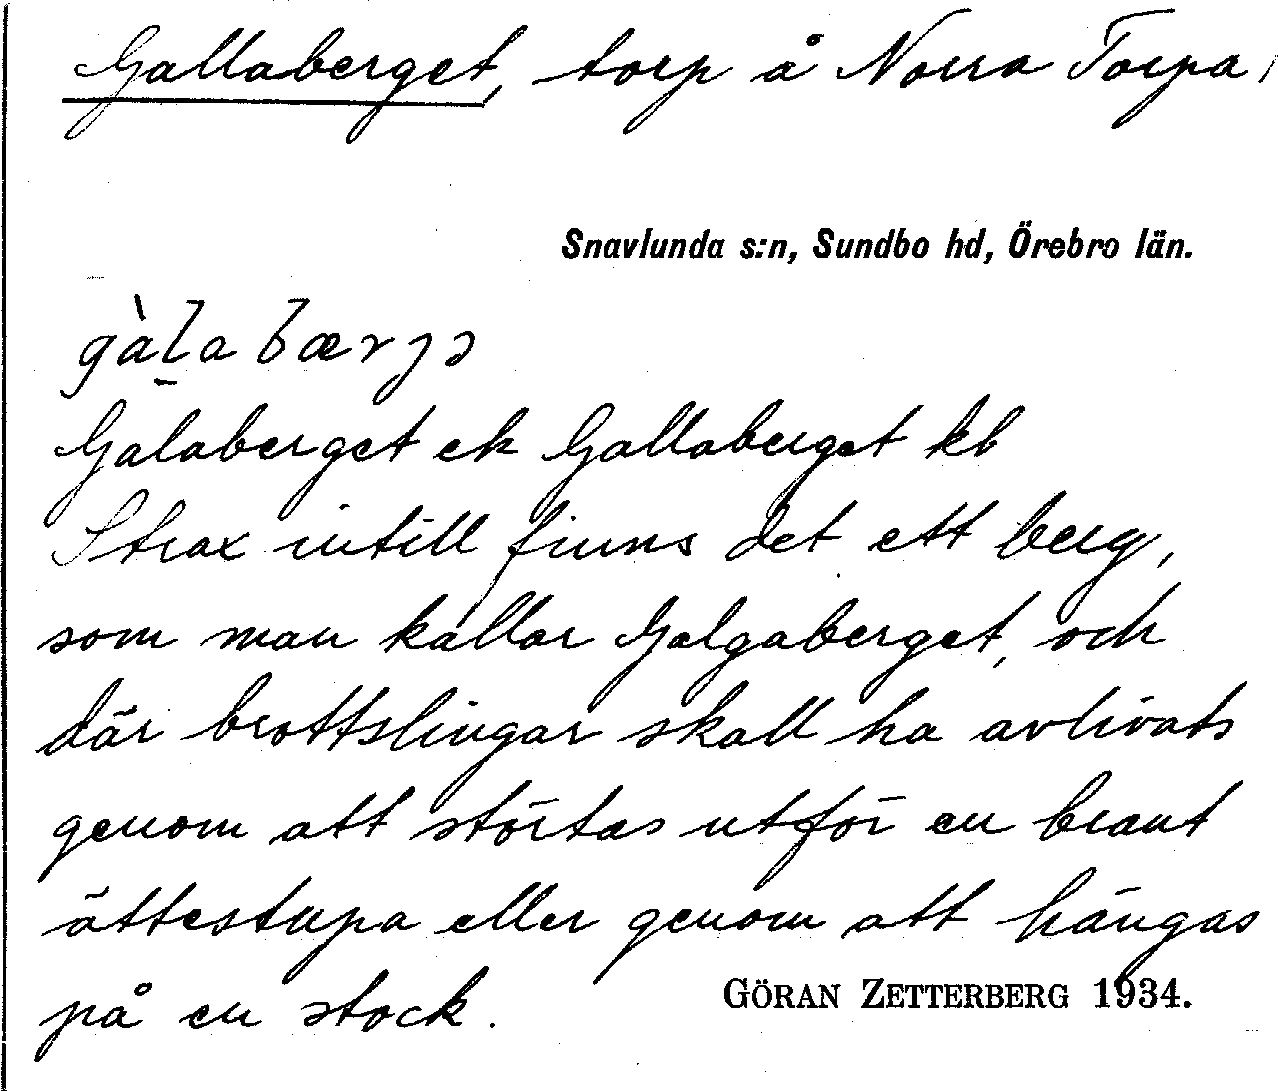 Gallaberget, torp å Norra Torpa,
Snavlunda s:n, Sundbo hd, Örebro län.
gàlabærjə
Galaberget ek Gallaberget kb
Strax intill finns det ett berg,
som man kallar Galgaberget, och
där brottslingar skall ha avlivats
genom att störtas utför en brant
ättestupa eller genom att hängas
på en stock.
GÖRAN ZETTERBERG 1934.